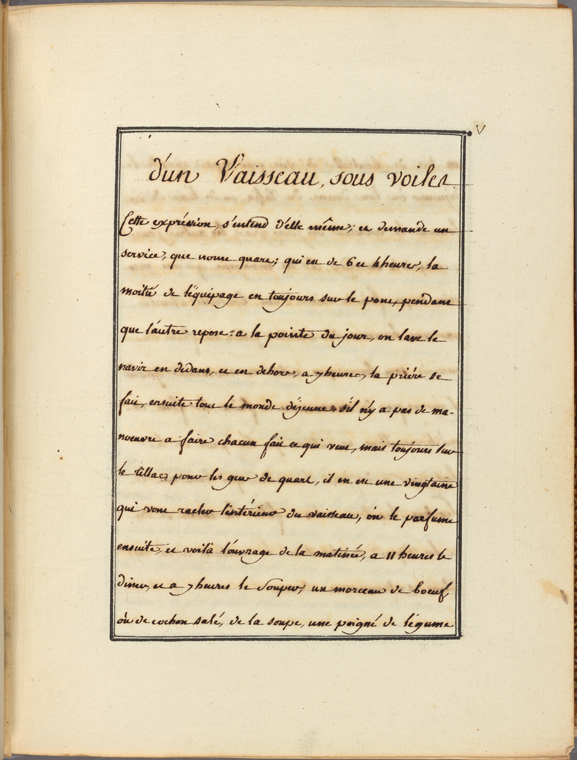 V
d'un Vaisseau, sous voiles
Cette expression s'entend d'elle même; et demande un
service, que nome quare; qui est de 6 et 4 heures, la
moitié de l'équipage est toujours sur le pont, pendant
que l'autre repose: a la pointe du jour, on lave le
navir en dedans, et en dehors, a 7 heures, la priére se
fait, ensuite tout le monde déjeune, s'il n'y a pas de ma-
noeuvre a faire chacun fait ce qui veut, mais toujours sur
le tillac; pour les gens de quart, il en est une vingtaine
qui vont racler l'intérieur du vaisseau, on le parfume
ensuite, et voilà l'ouvrage de la matinée, a 11 heures le
diner, et a 7 heures le Souper, un morceau de boeuf
où de cochon salé, de la soupe, une poigné de légume